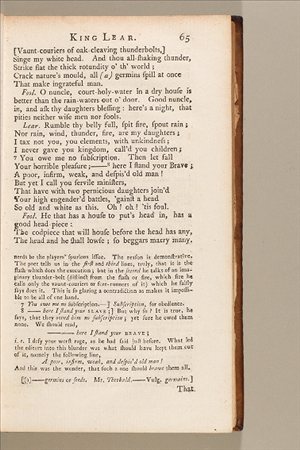 KING LEAR. 65
[Vaunt-couriers of oak-cleaving thunderbolts,]
Singe my white head. And thou all-ſhaking thunder,
Strike flat the thick rotundity o' th' world;
Crack nature's mould, all (a) germins ſpill at once
That make ingrateful man.
Fool. O nuncle, court-holy-water in a dry houſe is
better than the rain-waters out o' door. Good nuncle,
in, and aſk thy daughters bleſſing: here's a night, that
pities neither wiſe men nor fools.
Lear. Rumble thy belly full, ſpit fire, ſpout rain;
Nor rain, wind, thunder, fire, are my daughters;
I tax not you, you elements, with unkindneſs;
I never gave you kingdom, call'd you children;
7 You owe me no ſubſcription. Then let fall
Your horrible pleaſure;——8 here I ſtand your Brave;
A poor, infirm, weak, and deſpis'd old man!
But yet I call you ſervile miniſters,
That have with two pernicious daughters join'd
Your high engender'd battles, 'gainſt a head
So old and white as this. Oh! oh! 'tis foul.
Fool. He that has a houſe to put's head in, has a
good head-piece:
The codpiece that will houſe before the head has any,
The head and he ſhall lowſe; ſo beggars marry many,
needs be the players' ſpurious iſſue. The reaſon is demonſtrative.
The poet tells us in the firſt and third lines, truly, that it is the
flaſh which does the execution; but in the ſecond he talks of an ima-
ginary thunder-bolt (diſtinct from the flaſh or fire, which fire he
calls only the vaunt-couriers or fore-runners of it) which he falſly
ſays does it. This is ſo glaring a contradiction as makes it impoſſi-
ble to be all of one hand.
7 You owe me no ſubſcription.—] Subſcription, for obedience.
8 —— here I ſtand your SLAVE;] But why ſo? It is true, he
ſays, that they owed him no ſubſcription; yet ſure he owed them
none. We ſhould read,
———— here I ſtand your BRAVE;
i. e. I defy your worſt rage, as he had ſaid juſt before. What led
the editors into this blunder was what ſhould have kept them out
of it, namely the following line,
A poor, infirm, weak, and deſpis'd old man!
And this was the wonder, that ſuch a one ſhould brave them all.
[(a)——germins or ſeeds. Mr. Theobald.——Vulg. germains.]
That